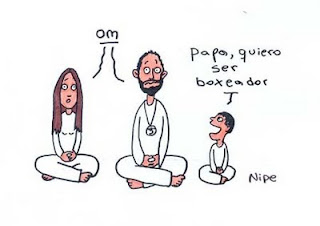 om
papa, quiero
ser
boxeador
Nipe